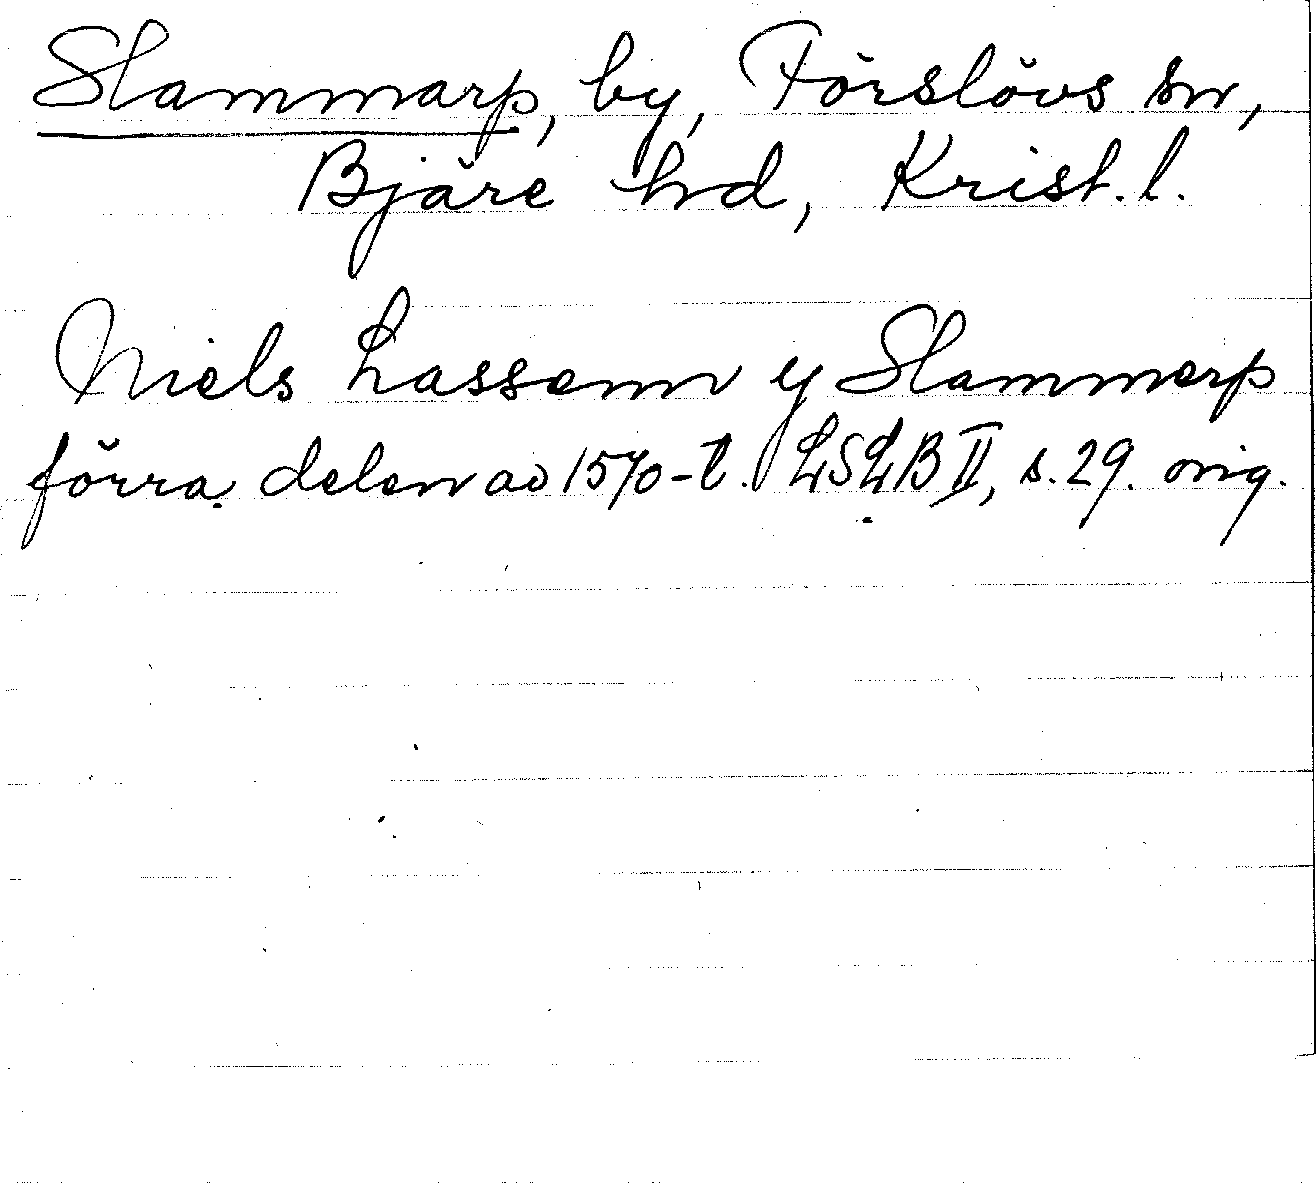 Slammarp, by, Förslövs sn,
Bjäre hd, Krist. l.
Niels Lassenn y Slammerp
förra delen av 1570-t. LSLB II, s. 29. orig.